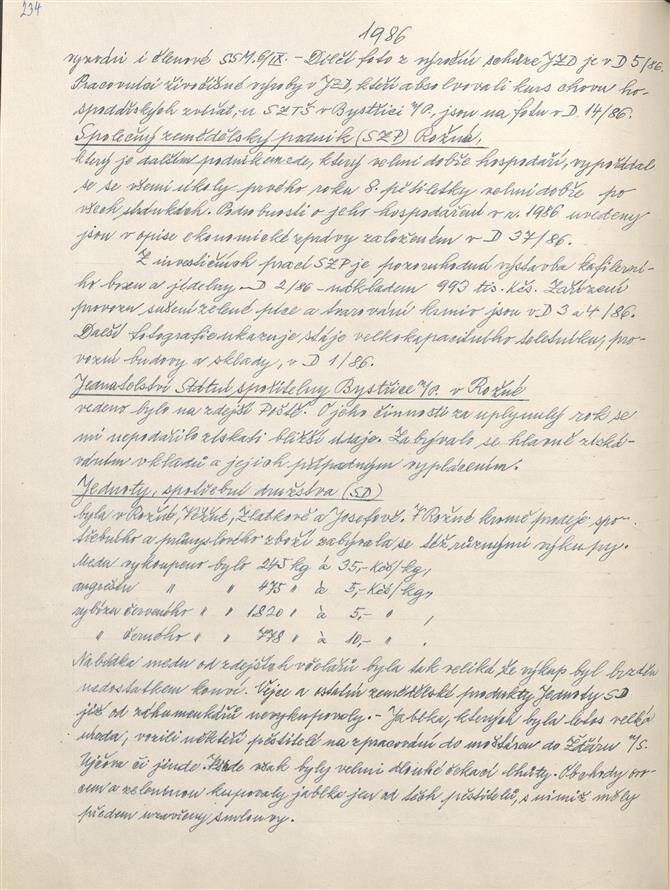 234
1986
vyrodni i členové SSM. 6/IX. - Dílčí foto z výroční schůze JZD je v D 5/86.
Pracovníci živočišné výroby v JZD, kteří absolvovali kurs chovu ho-
spodářských zvířat, u SZTŠ v Bystřici n/P. jsou na fotu v D. 14/86.
Společný zemědělský podnik (SZP) Rožná,
který je dalším podnikem zde, který velmi dobře hospodaří, vypořádal
se se všemi úkoly prvého roku 8. pětiletky velmi dobře po
všech stránkách. Podrobnosti o jeho hospodaření v r. 1986 uvedeny
jsou v opise ekonomické zprávy založeném v D 37/86.
Z investičních prací SZP je pozoruhodná výstavba kafilerní-
ho boxu a jídelny - D 2/86 - nákladem 993 tis. Kčs. Zařízení
provozu sušení zelené píce a tvarování krmiv jsou v D 3 a 4/86.
Další fotografie ukazuje stáje velkokapacitního teletníku, pro-
vozní budovy a sklady, v D 1/86.
Jednatelství Státní spořitelny Bystřice n/P. v Rožné
vedeno bylo na zdejší Poště. O jeho činnosti za uplynulý rok se
mi nepodařilo získati bližší údaje. Zabývalo se hlavně získá-
váním vkladů a jejich případným vyplácením.
Jednoty, spotřební družstva (SD)
byla v Rožné, Věžné, Zlatkově a Josefově. V Rožné kromě prodeje spo-
třebního a průmyslového zboží zabývala se též různými výkupy.
Medu vykoupeno bylo 245 kg à 35,- Kčs/kg,
angreštu " " 475 " à 5,- Kčs/kg,
rybízu červeného " " 1.820 " à 5,- " ,
" černého " " 778 " à 10,- " ,
Nabídka medu od zdejších včelařů byla tak veliká, že výkup byl brzděn
nedostatkem konví. Vejce a ostatní zemědělské produkty Jednoty SD
již od záhumenkářů nevykupovaly. - Jablka, kterých byla letos velká
úroda, vozili někteří pěstitelé na zpracování do moštáren do Žďáru n/S.
Ujčova či jinde. Všude však byly velmi dlouhé čekací lhůty. Obchody ovo-
cem a zeleninou kupovaly jablka jen od těch pěstitelů, s nimiž měly
předem uzavřeny smlouvy.